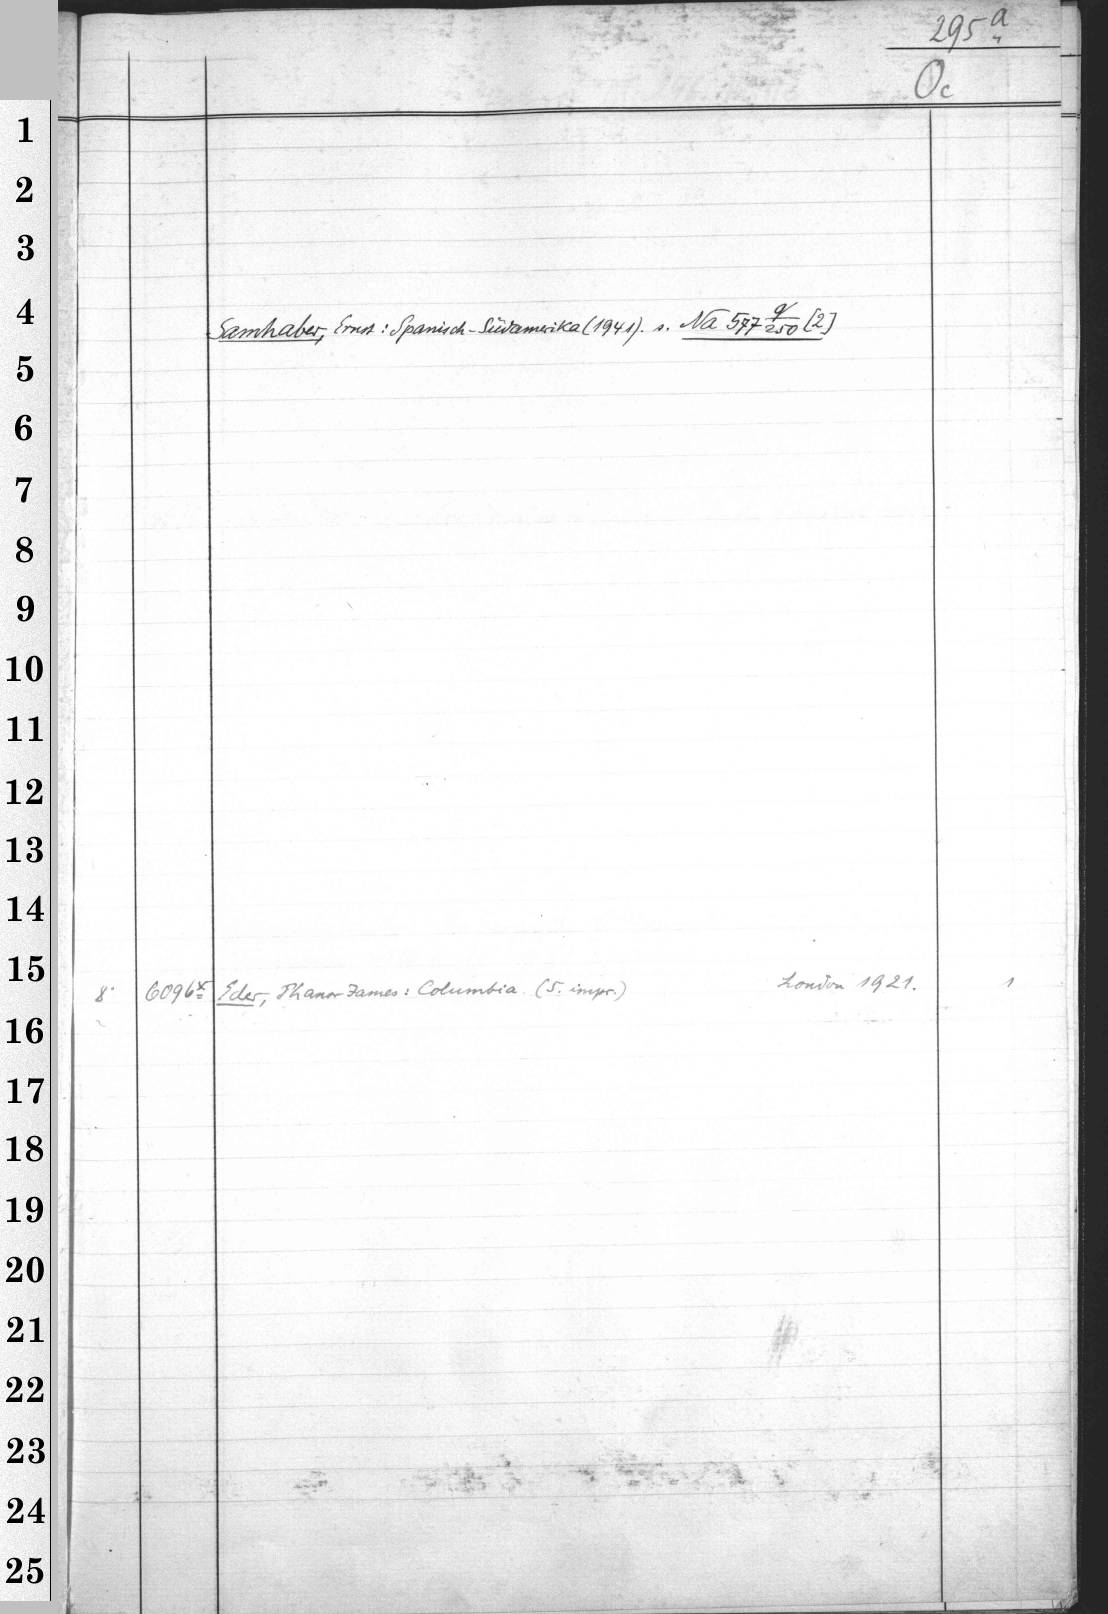 295 a
Oc
1
2
3
4
Samhaber, Ernst: Spanisch-Südamerika (1941). s. Na 577 q/250 [2]
5
6
7
8
9
10
11
12
13
14
15
8° 6096 x Eder, Phanor James: Columbia. (5. impr.) London 1921. 1
16
17
18
19
20
21
22
23
24
25